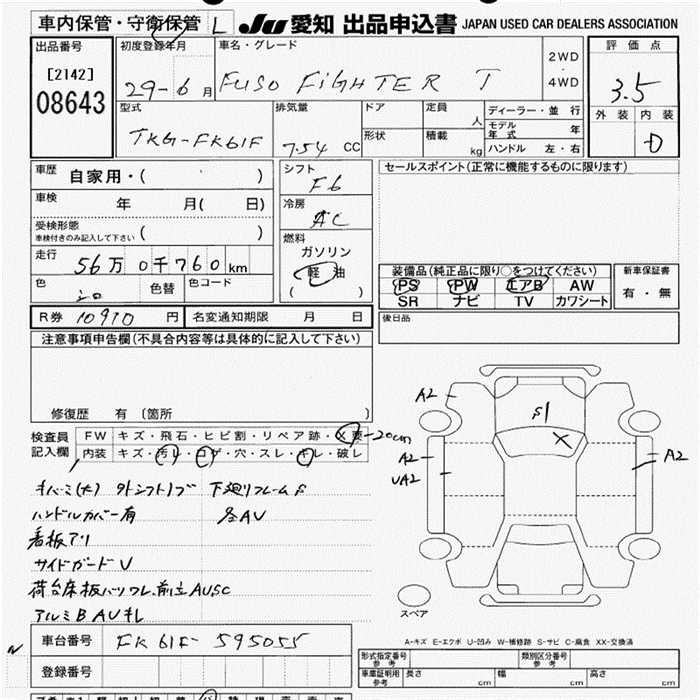 車内保管・守衛保管 L
JU 愛知 出品申込書 JAPAN USED CAR DEALERS ASSOCIATION
出品番号
[2142]
08643
初度登録年月
29-6月
車名・グレード
FUSO FIGHTER T
2WD
・
4WD
評価点
3.5
外装 内装
D
型式
TKG-FK61F
排気量
7.54 CC
ドア
形状
定員
人
積載
kg
ディーラー・並行
モデル年式 年
ハンドル 左・右
車歴
自家用・( )
車検 年 月( 日)
受検形態
車検付きのみ記入して下さい ( )
走行
56万0千760km
色
シロ
色替
色コード
シフト
F6
冷房
AC
燃料
ガソリン
軽油
( )
セールスポイント(正常に機能するものに限ります)
装備品(純正品に限り○をつけてください)
PS PW エアB AW
SR ナビ TV カワシート
新車保証書
有・無
R券 10910 円
名変通知期限 月 日
後日品
注意事項申告欄(不具合内容等は具体的に記入して下さい)
修復歴 有 〔箇所 〕
検査員記入欄
FW キズ・飛石・ヒビ割・リペア跡・X要 -20cm
内装 キズ・汚レ・コゲ・穴・スレ・キレ・破レ
キバミ(大) 外シフトノブ 下廻りフレームS
ハンドルカバー有 各AU
看板アリ
サイドガードU
荷台床板ハツワレ、前立AUSC
アルミBAUキレ
A2
S1
X
A2
UA2
A2
スペア
A-キズ E-エクボ U-凹み W-補修跡 S-サビ C-腐食 XX-交換済
車台番号 FK61F-595055
登録番号
形式指定番号 参考
類別区分番号 参考
車庫証明用 参考
長さ cm 幅 cm 高さ cm